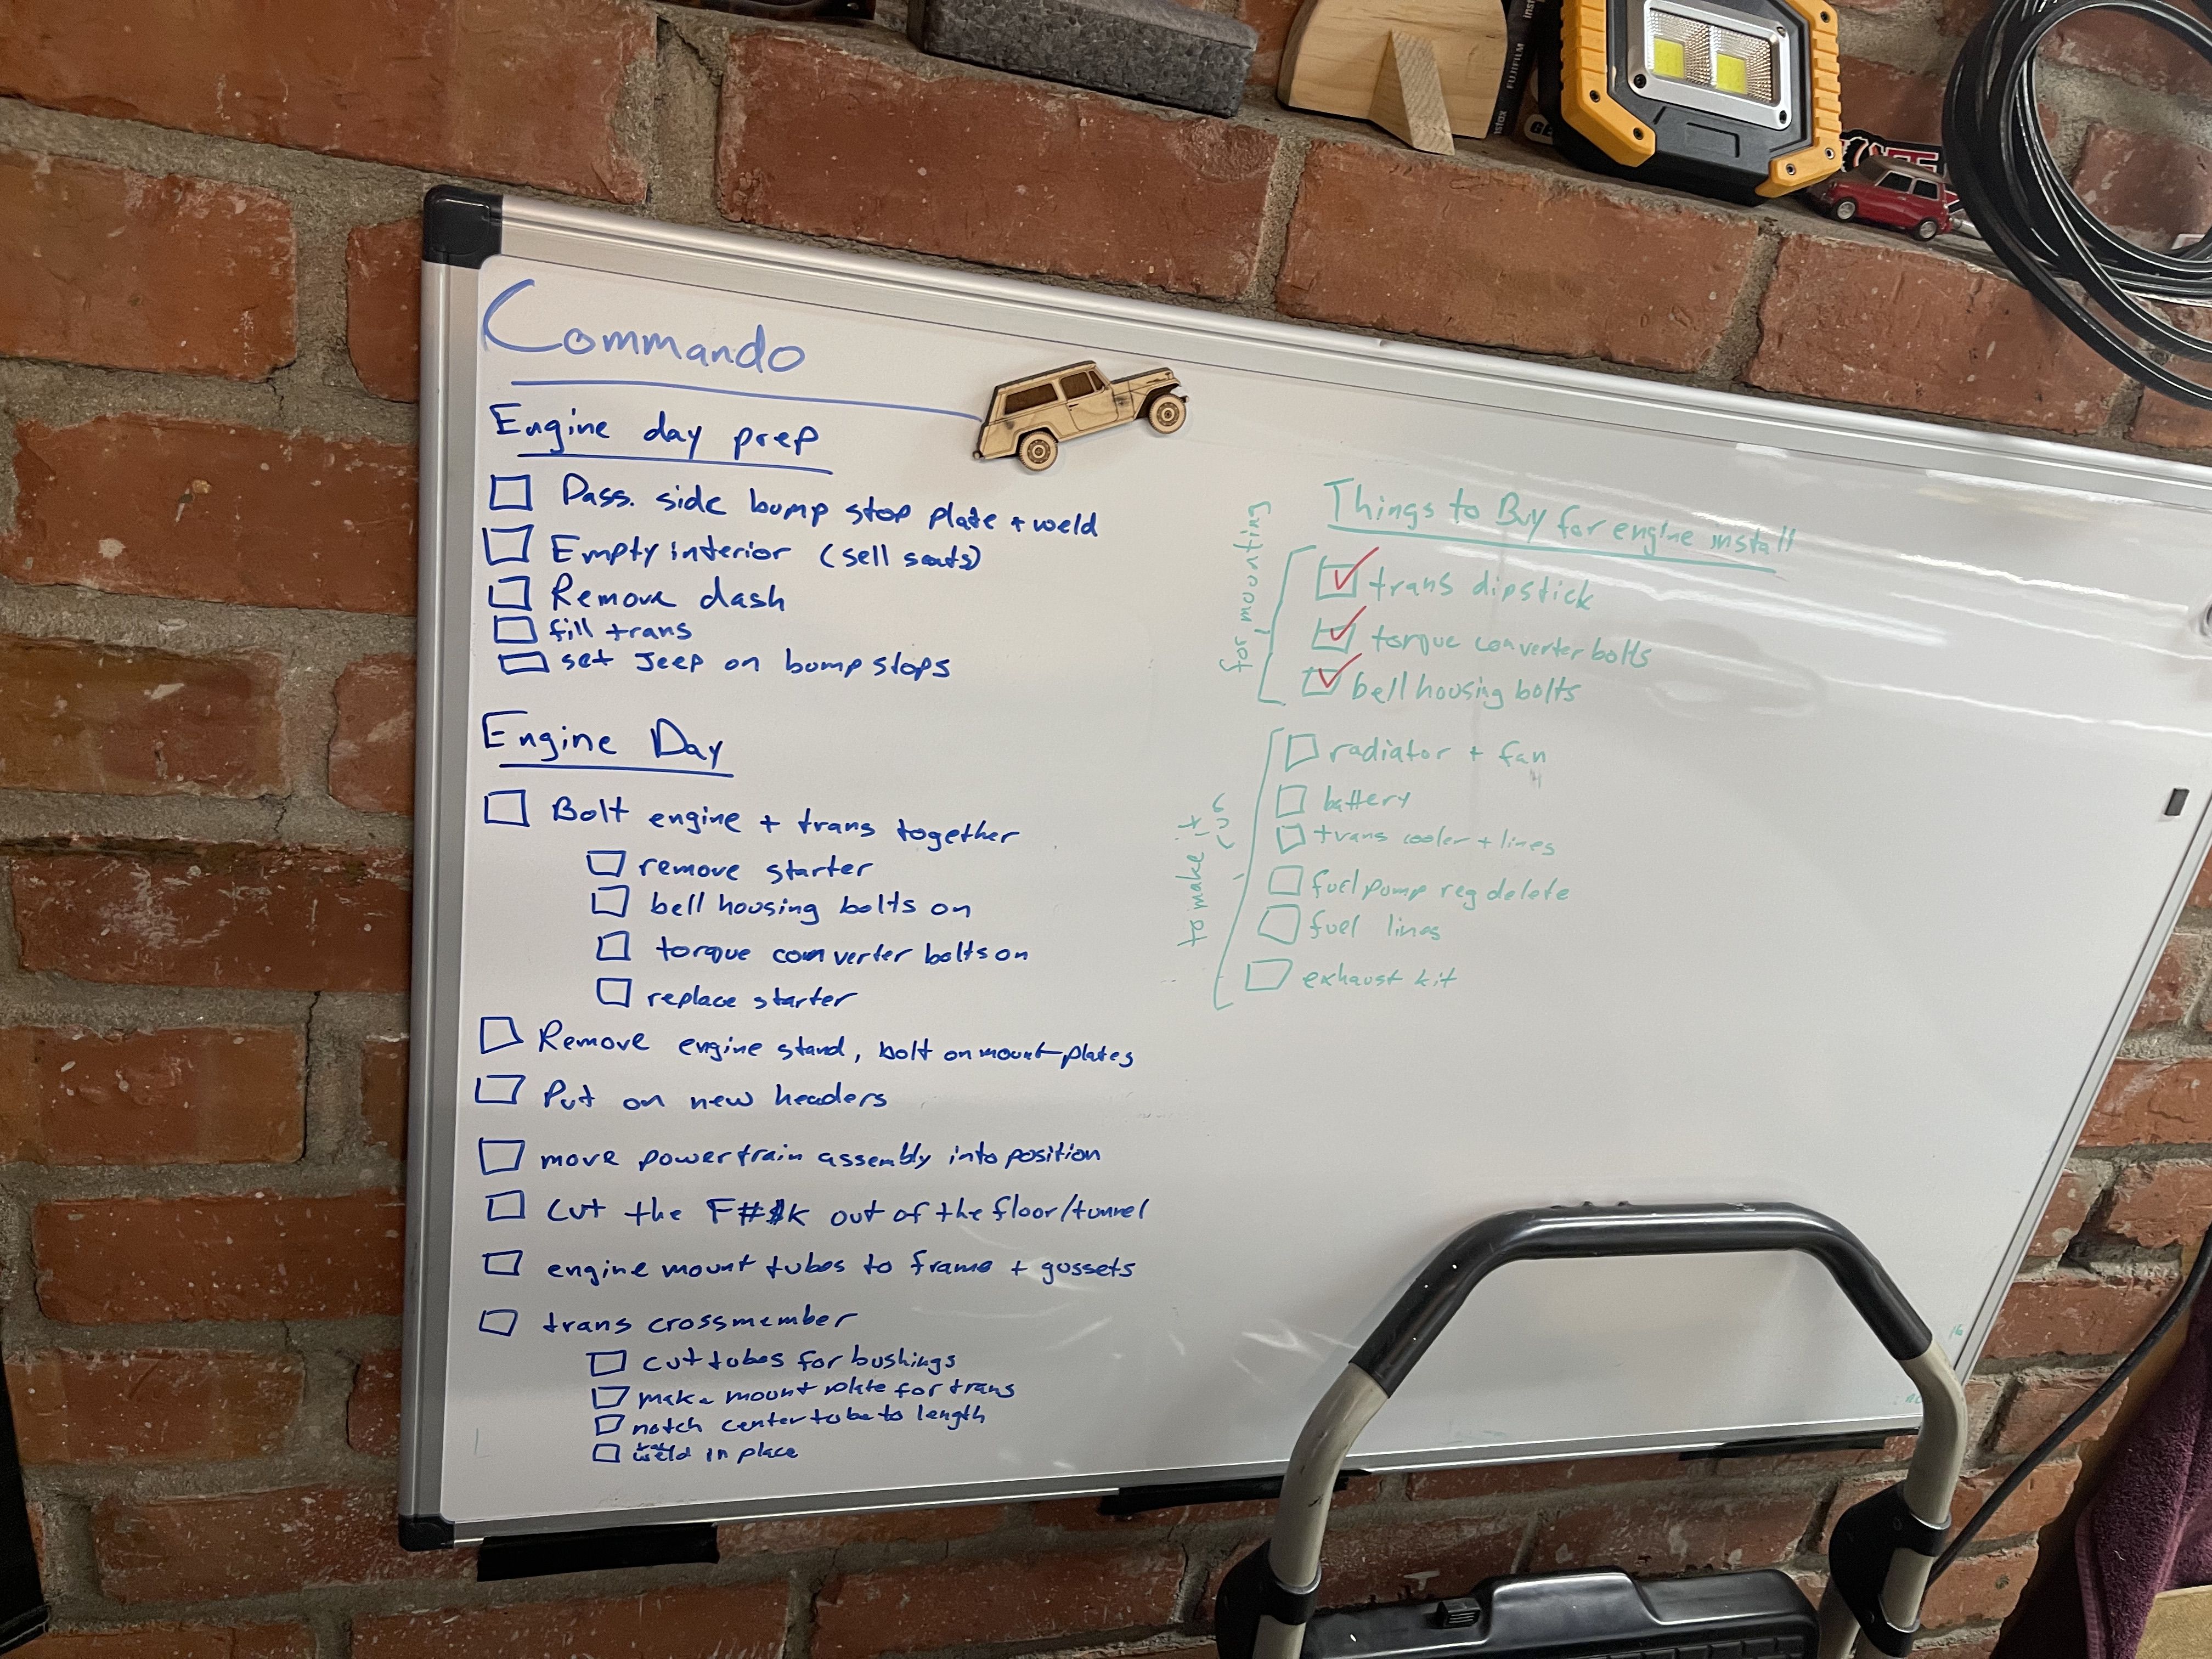 Commando
Engine day prep
Pass. side bump stop plate + weld
Empty interior (sell seats)
Remove dash
fill trans
set Jeep on bump stops
Engine Day
Bolt engine + trans together
remove starter
bell housing bolts on
torque converter bolts on
replace starter
Remove engine stand, bolt on mount plates
Put on new headers
move powertrain assembly into position
Cut the F#$K out of the floor/tunnel
engine mount tubes to frame + gussets
trans crossmember
cut tubes for bushings
make mount plate for trans
notch center tube to length
weld in place
Things to Buy for engine install
for mounting
trans dipstick
torque converter bolts
bell housing bolts
to make it
radiator + fan
battery
trans cooler + lines
fuel pump reg delete
fuel lines
exhaust kit
FUJIFILM
instax